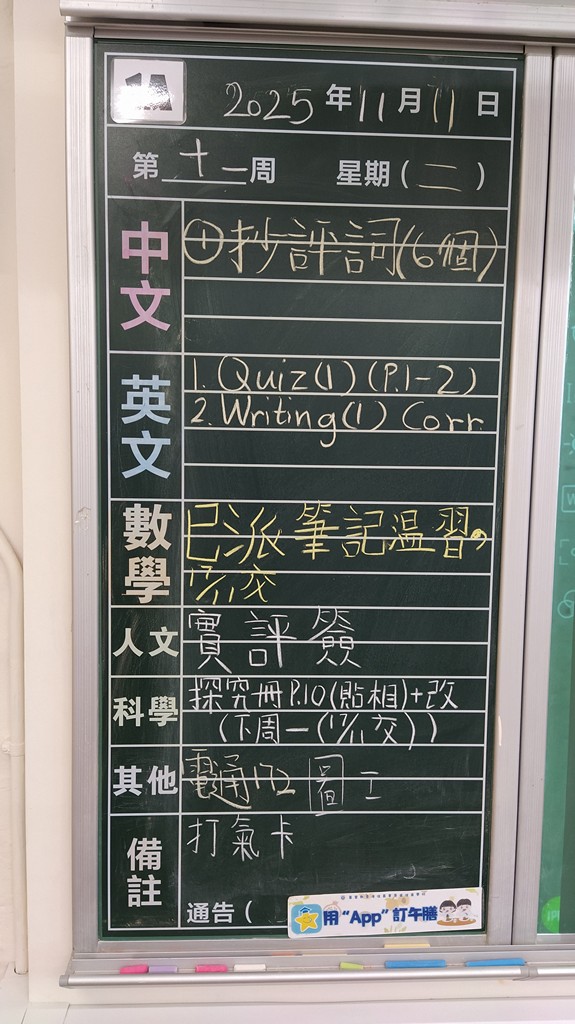 1A
2025年11月11日
第十一周 星期(二)
中文
①抄評詞(6個)
英文
1. Quiz(1) (P.1-2)
2. Writing(1) Corr.
數學
已派筆記温習,
17/11交
人文
實評簽
科學
探究冊P.10(貼相)+改
(下周一(17/11交))
其他
電通172 圖 工
備註
打氣卡
通告(
用 “App” 訂午膳